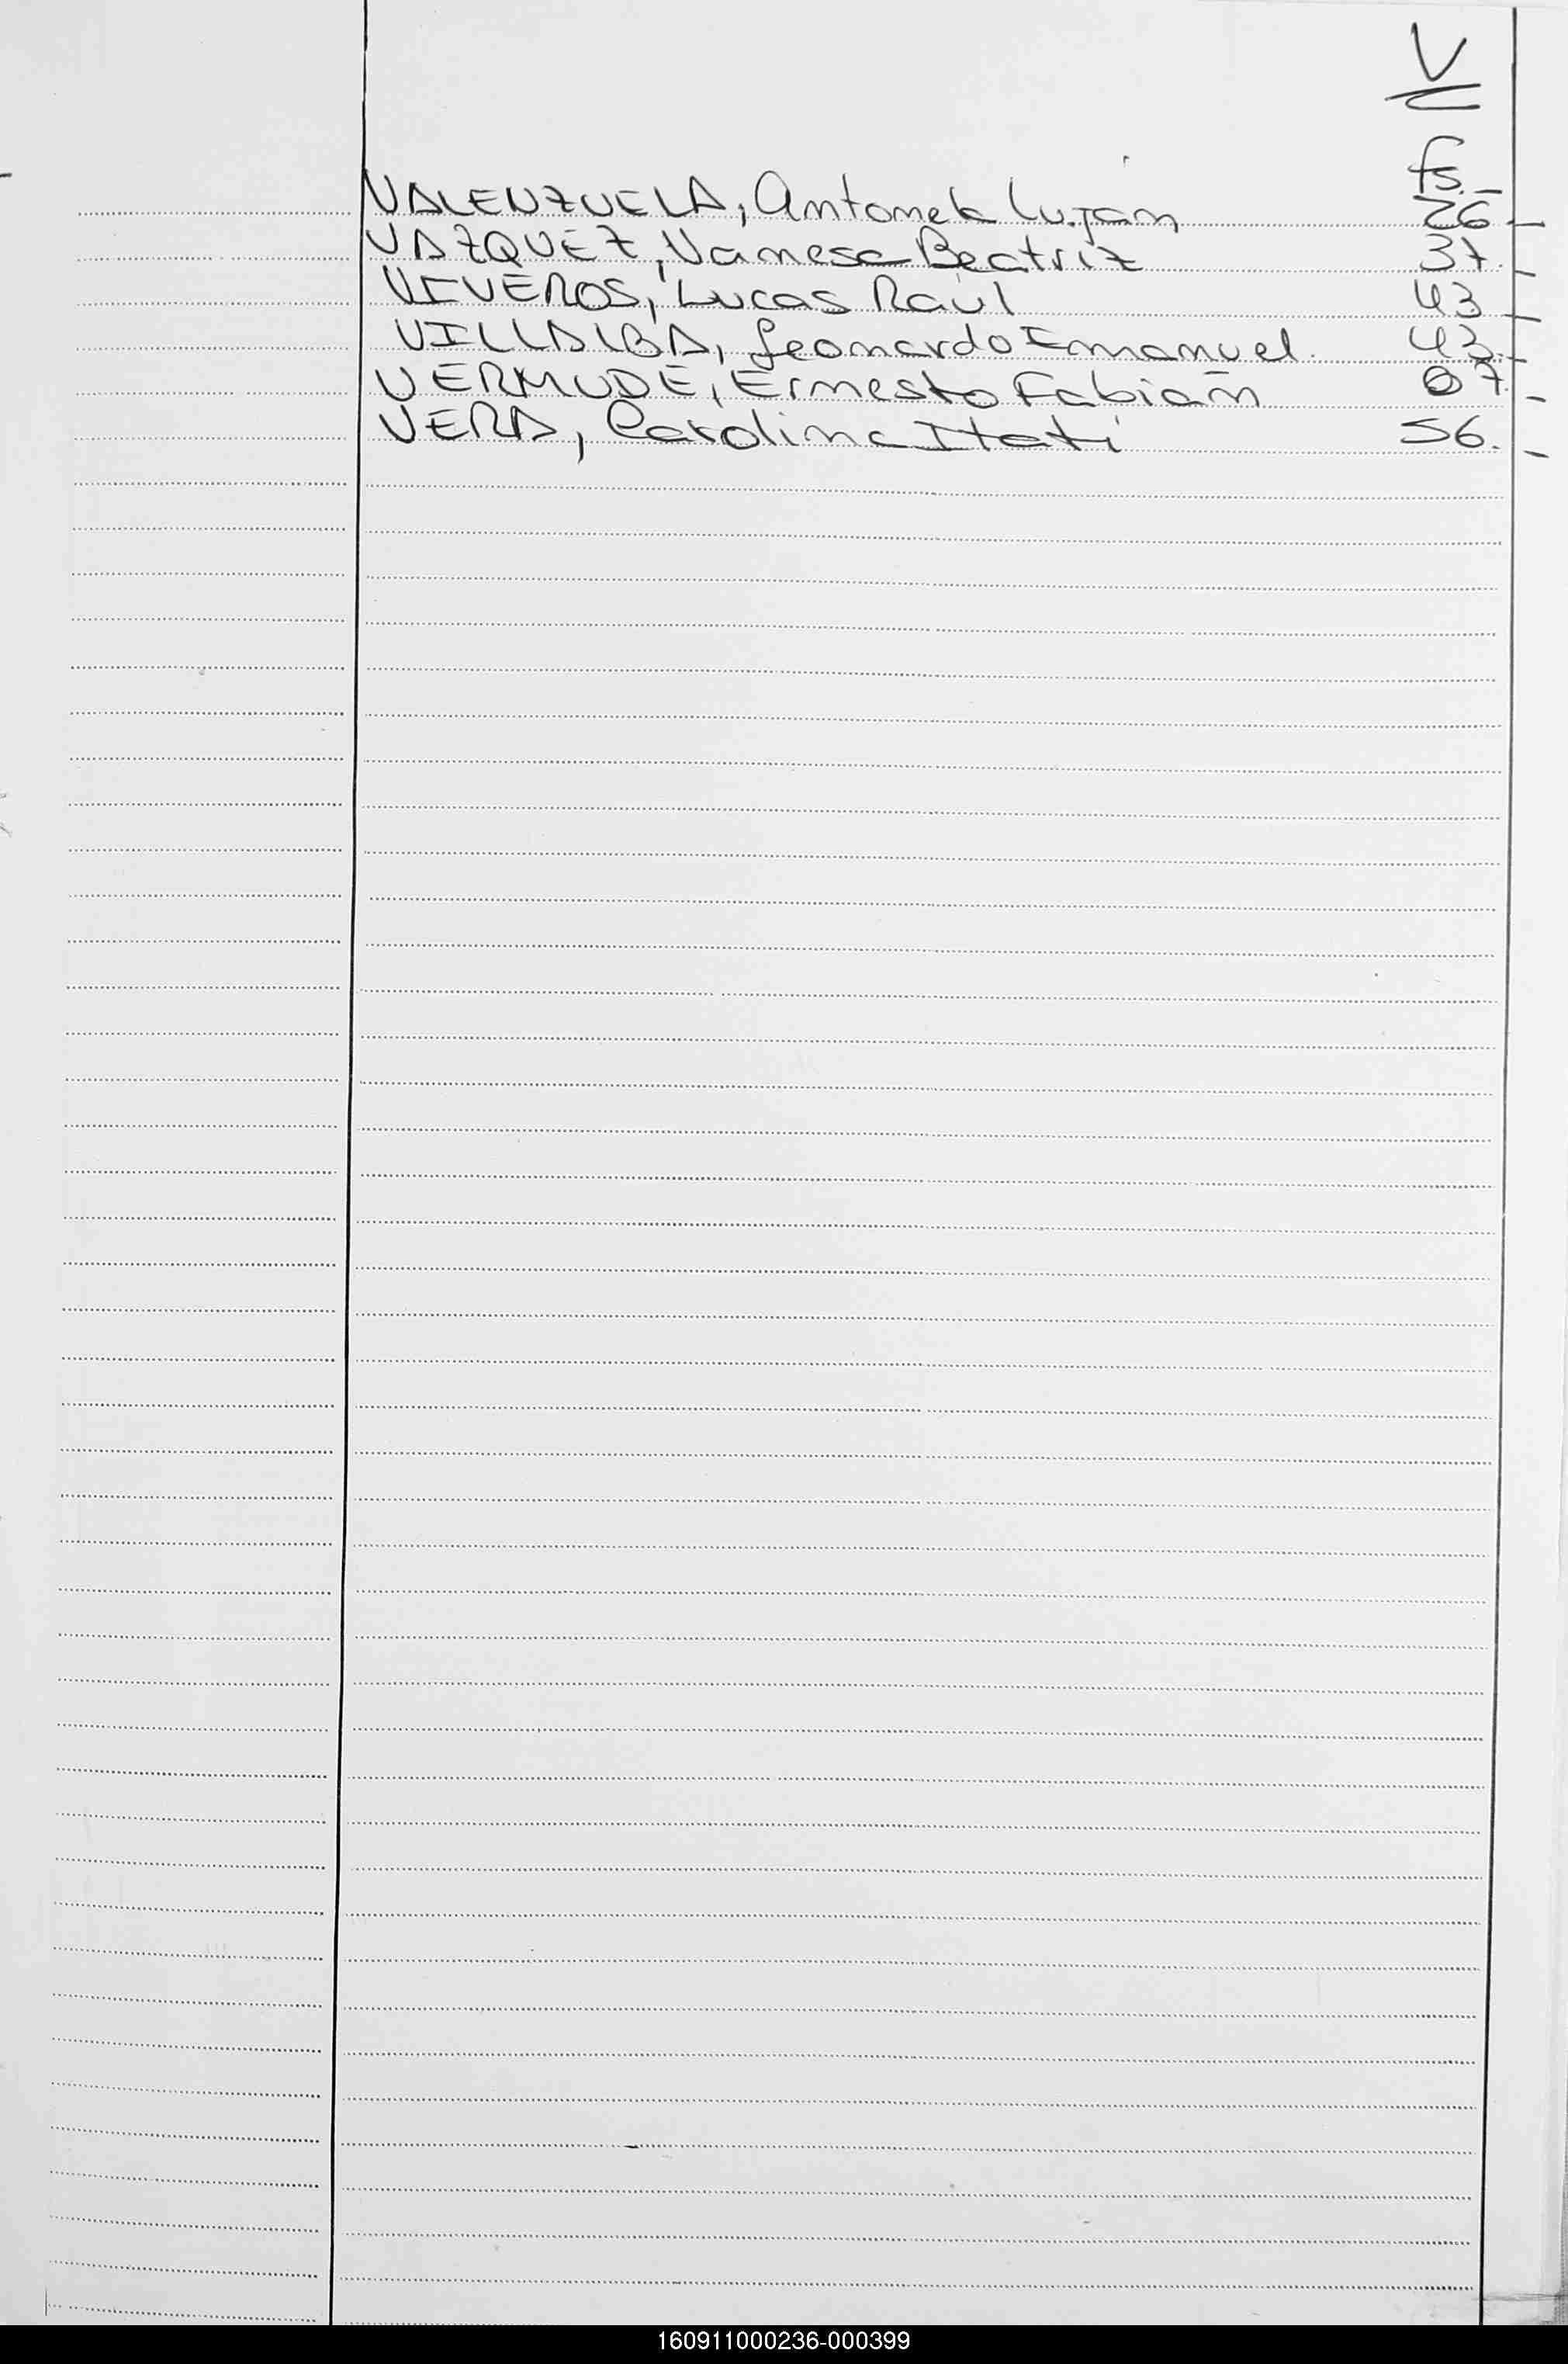 V
fs.
VALENZUELA, Antonela Lujan 26
VAZQUEZ, Vanesa Beatriz 37.
VIVEROS, Lucas Raúl 43
VILLALBA, Leonardo Emanuel. 43.
VERMUDE, Ernesto Fabian 07.
VERA, Carolina Itatí 56.
160911000236-000399